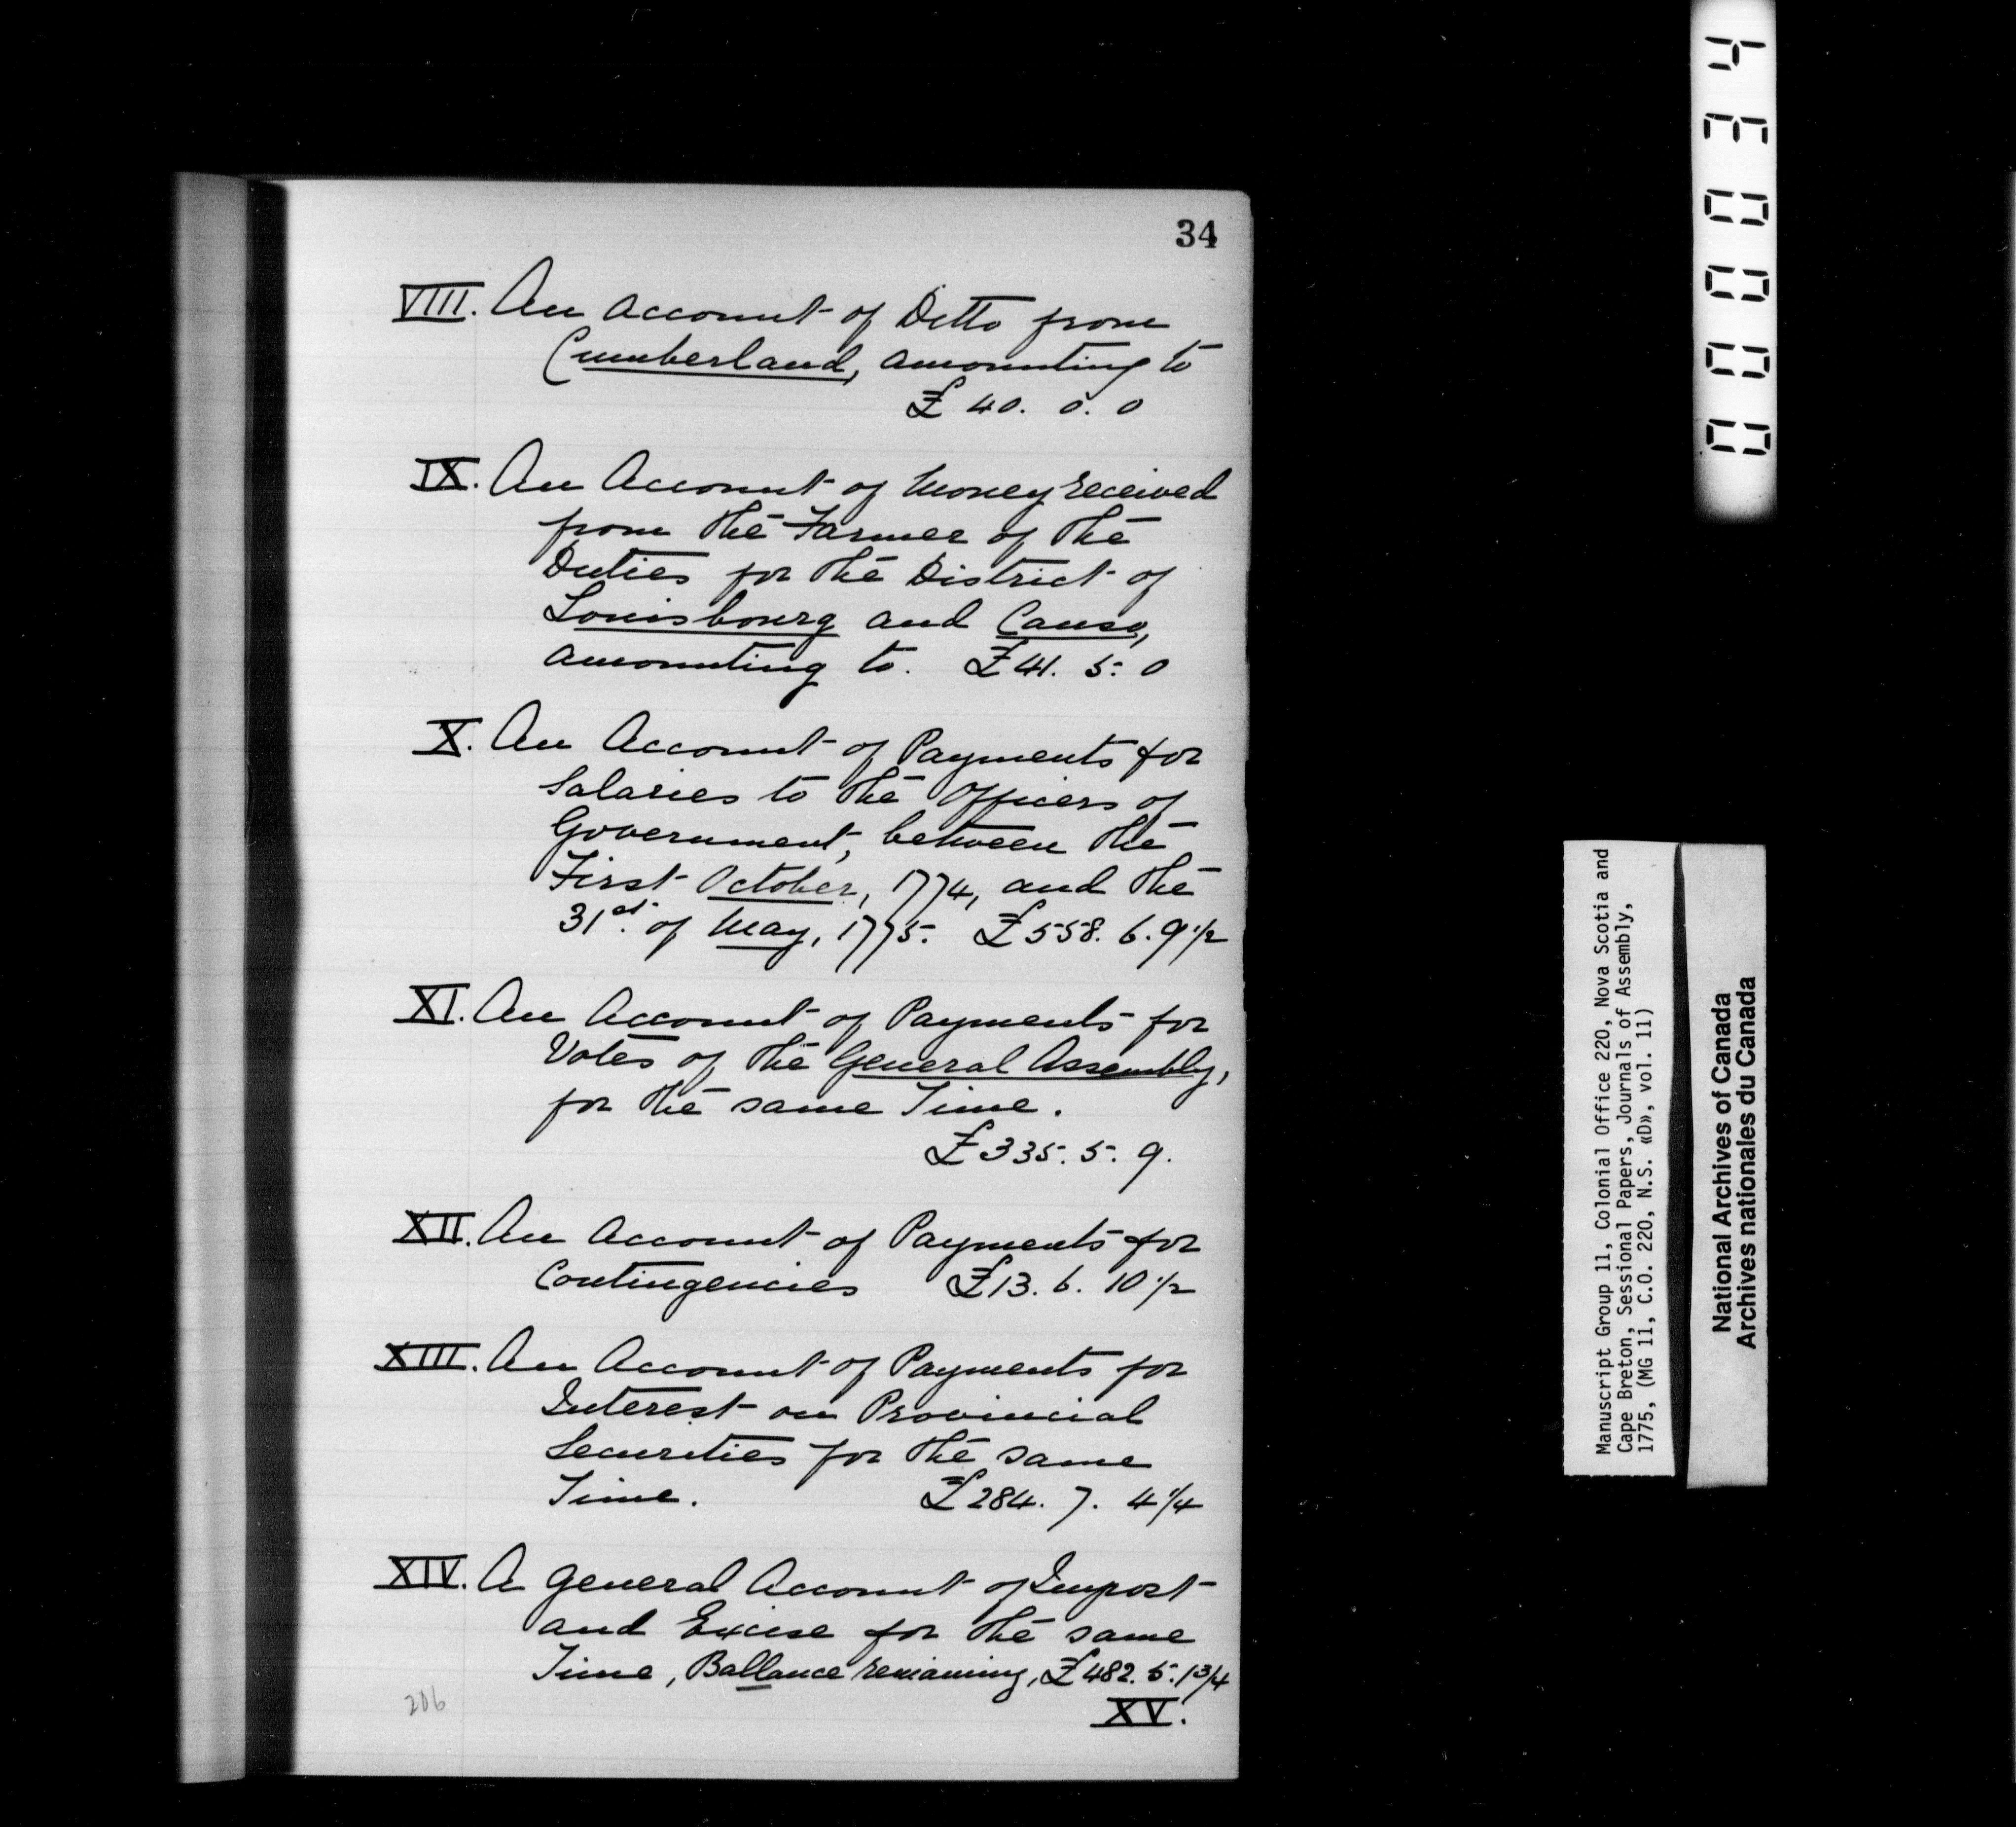 34
VIII. An Account of Ditto from
Cumberland, amounting to
£ 40. 0. 0
IX. An Account of Money received
from the Farmer of the
Duties for the District of
Louisbourg and Canso,
amounting to. £ 41. 5. 0
X. An Account of Payments for
Salaries to the Officers of
Government, between the
First October, 1774, and the
31st. of May, 1775. £ 558. 6. 9 1/2
XI. An Account of Payments for
Votes of the General Assembly,
for the same Time.
£ 335. 5. 9.
XII. An Account of Payments for
Contingencies £ 13. 6. 10 1/2
XIII. An Account of Payments for
Interest on Provincial
Securities for the same
Time. £ 284. 7. 4 1/4
XIV. A General Account of Impost
and Excise for the same
Time, Ballance remaining, £ 482. 5. 1 3/4
XV.
206
000034
Manuscript Group 11, Colonial Office 220, Nova Scotia and
Cape Breton, Sessional Papers, Journals of Assembly,
1775, (MG 11, C.O. 220, N.S. «D», vol. 11)
National Archives of Canada
Archives nationales du Canada